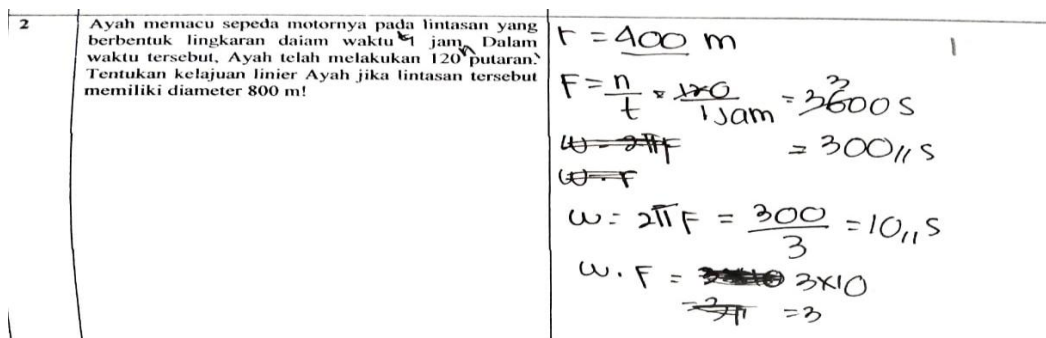 2
Ayah memacu sepeda motornya pada lintasan yang
berbentuk lingkaran dalam waktu 1 jam. Dalam
waktu tersebut, Ayah telah melakukan 120 putaran.
Tentukan kelajuan linier Ayah jika lintasan tersebut
memiliki diameter 800 m!
r = 400 m
1
F = n/t = 120/1 jam = 3600 S
= 300 // S
ω = 2πF
ω = 2πF = 300/3 = 10 ,, S
ω . F = 3x10
= 3